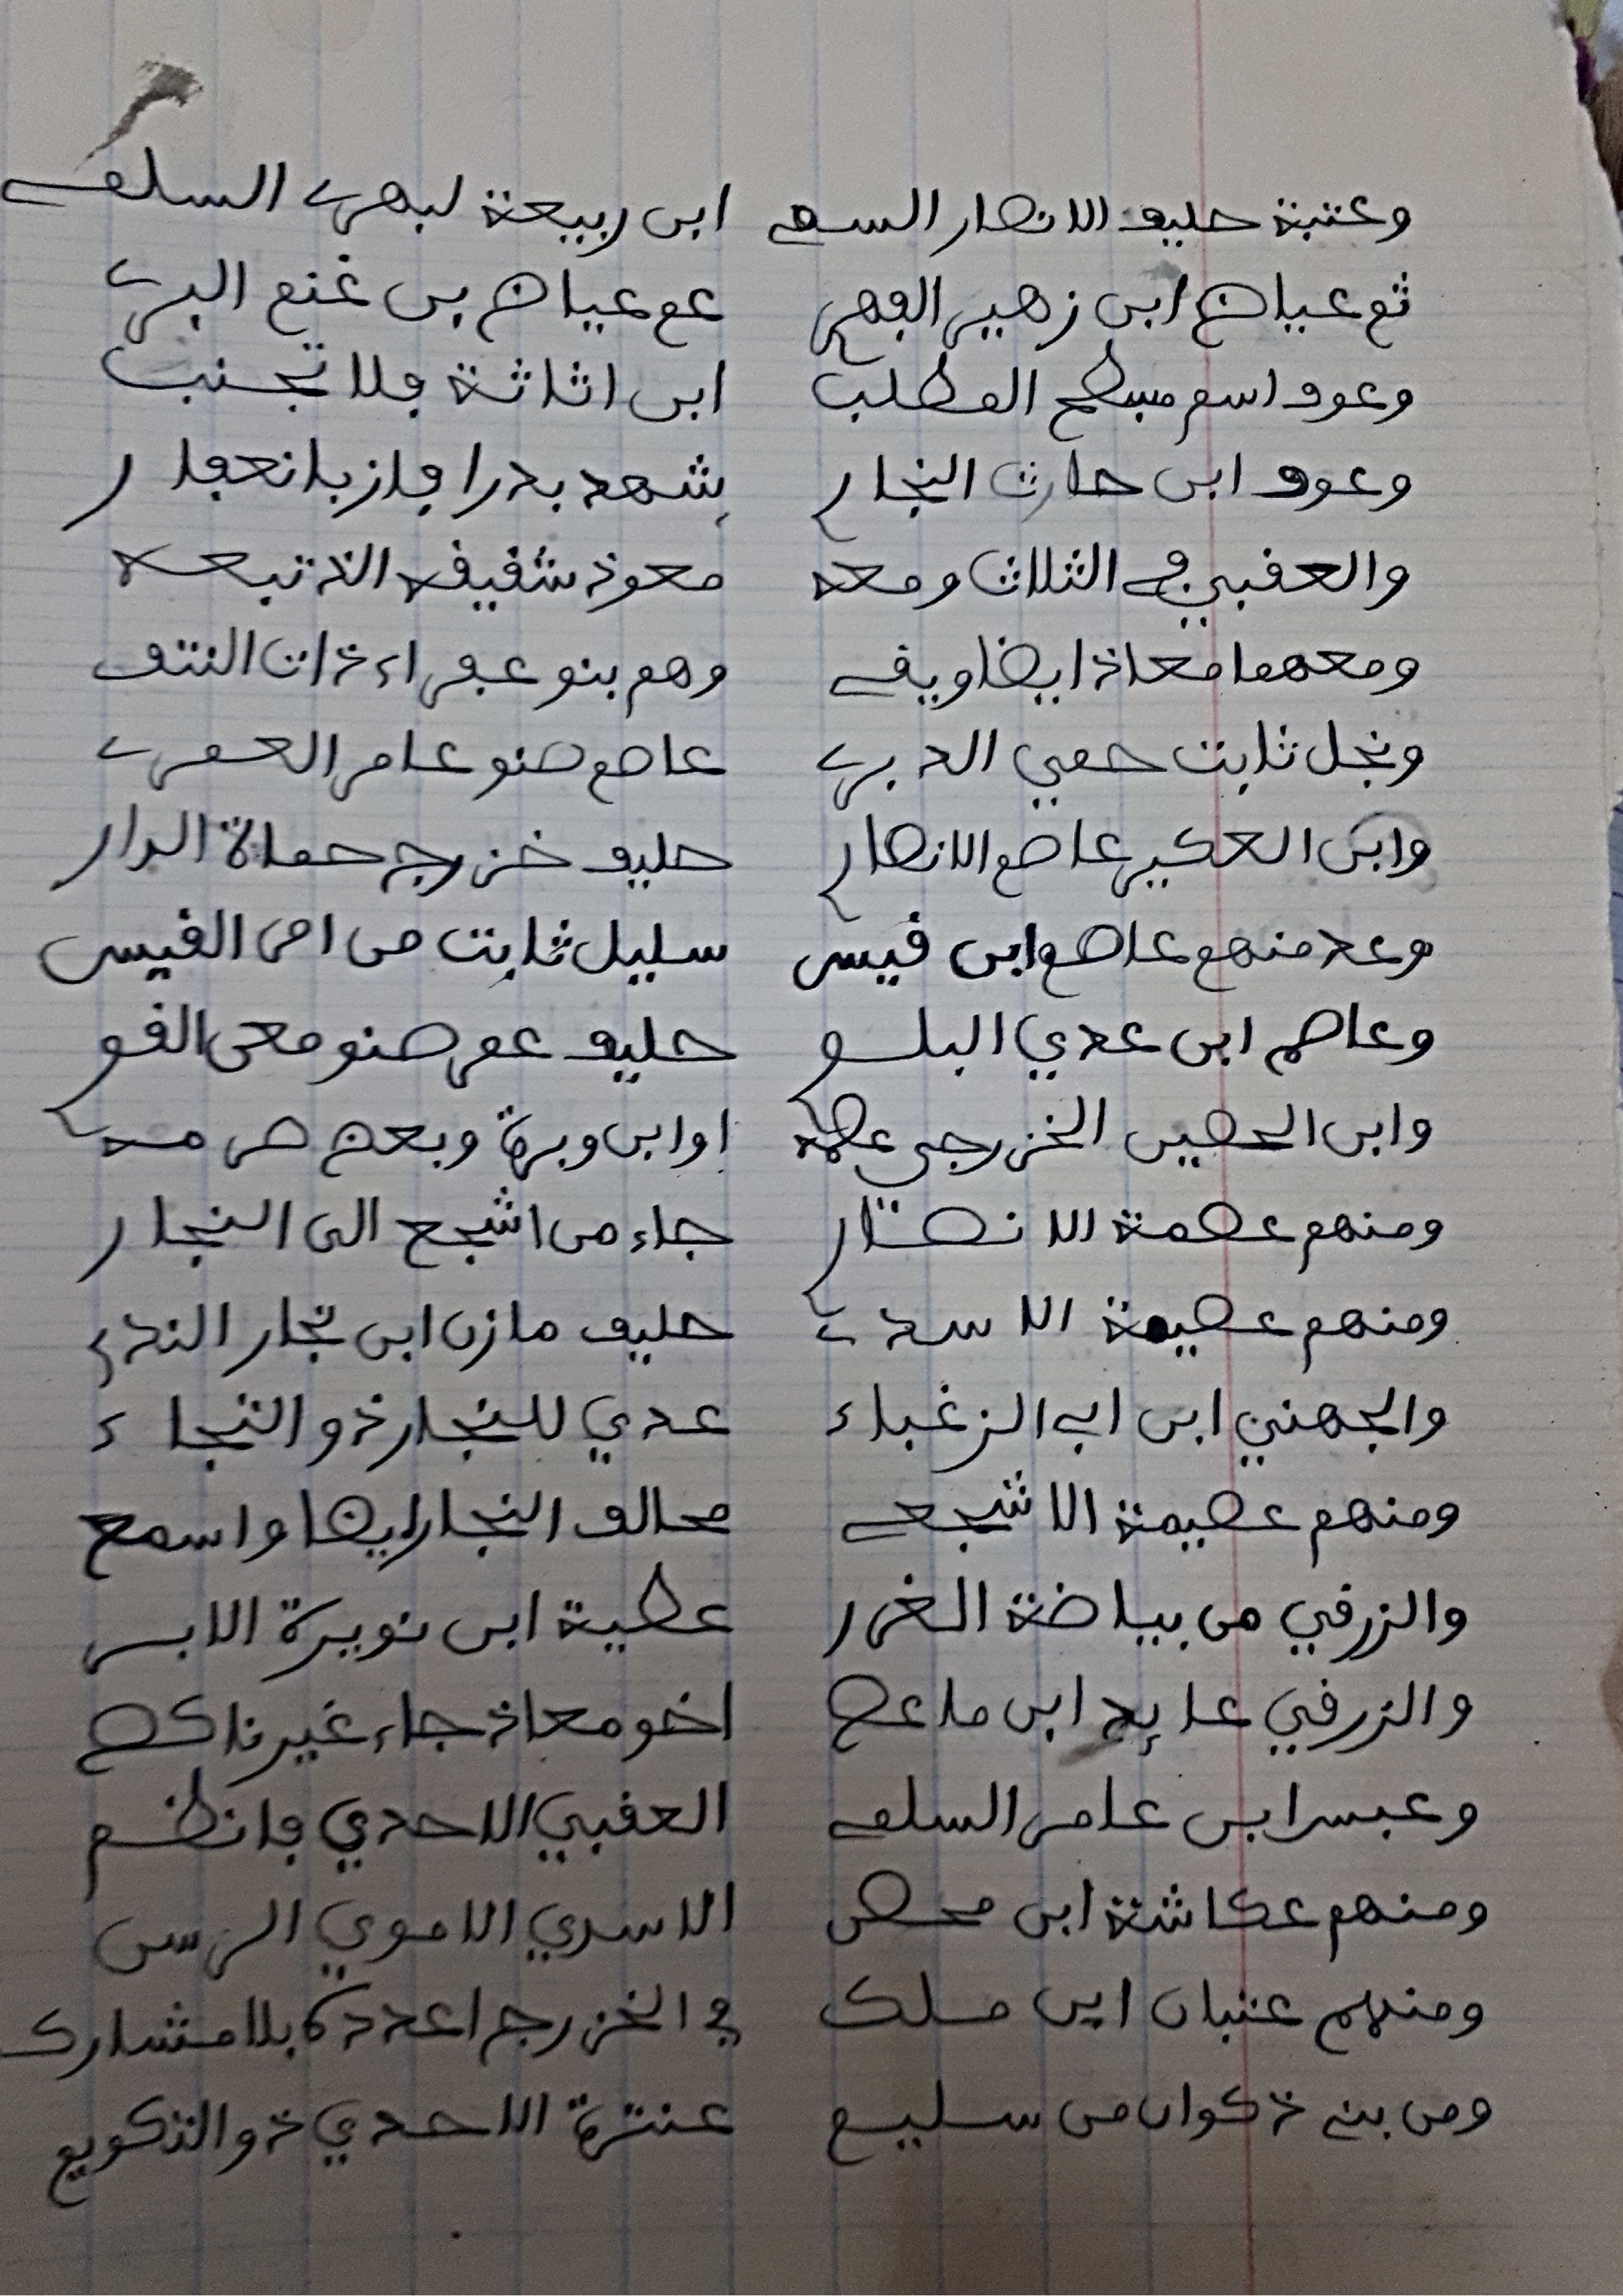 وعتبة حليف الانصار السم ابن ربيعة لبهرى السلمى
ثم عياض ابن زهير الفهر عم عياض بن غنم البرى
وعوف اسم مسطح المطلب ابن اثاثة فلا تجنب
وعوف ابن حارث النجار شهد بدرا فاز بانعفار
والعقبي في الثلاث ومعه معوذ شقيقه الذ تبعه
ومعهما معاذ ايضا ويفى وهم بنو عفراء ذات النتف
ونجل ثابت حمي الدبرى عاصم صنو عامر العمرى
وابن العكير عاصم الانصار حليف خزرج حماة الدار
وعد منهم عاصم ابن قيس سليل ثابت من امر القيس
وعاصم ابن عدي البلو حليف عمر صنو معن القو
وابن الحصين الخزرجي عصمه او ابن وبرة وبعض صرمه
ومنهم عصمة الانصار جاء من اشجع الى النجار
ومنهم عصيمة الاسدى حليف مازن ابن نجار الندي
والجهني ابن ابي الزغباء عدي للنجار ذو النجاء
ومنهم عصيمة الاشجعى محالف النجار ايضا واسمع
والزرقي من بياضة الغرر عطية ابن نويرة الابر
والزرقي عايد ابن ماعص اخو معاذ جاء غير ناكص
وعبس ابن عامر السلمى العقبي الاحدي فانظم
ومنهم عكاشة ابن محصن الاسدي الاموي الرسن
ومنهم عتبان ابن ملك في الخزرج اعدده بلا مشارك
ومن بني ذكوان من سليم عنترة الاحدي ذو التكويم